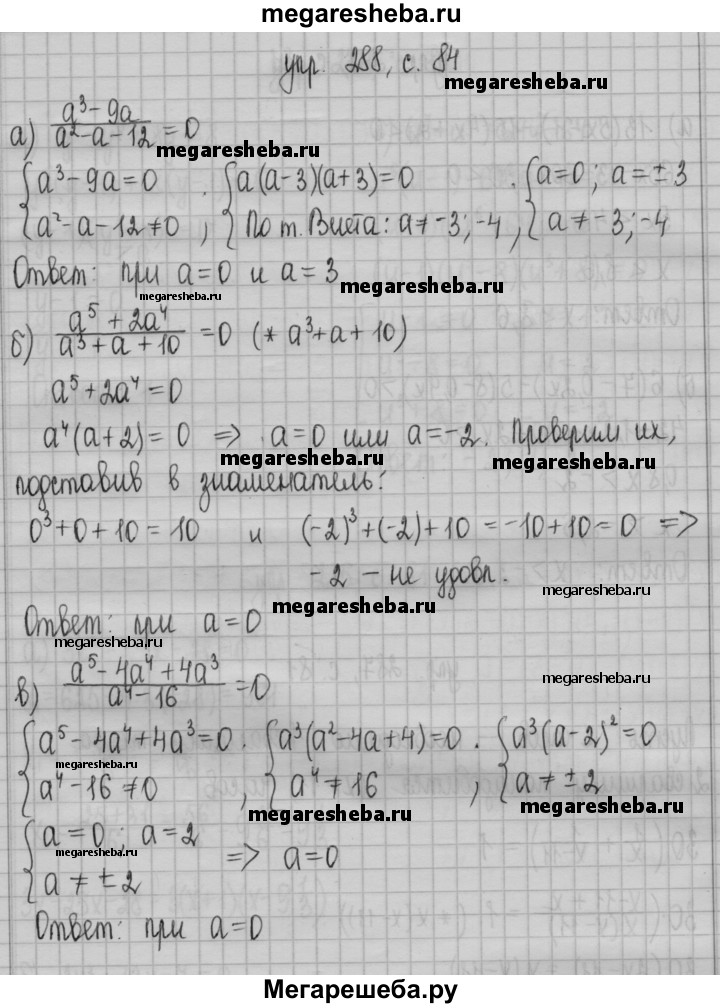 megaresheba.ru
упр. 288, с. 84
megaresheba.ru
а) (a³ - 9a)/(a² - a - 12) = 0
megaresheba.ru
{a³ - 9a = 0 . {a(a-3)(a+3) = 0 . {a = 0; a = ± 3
{a² - a - 12 ≠ 0 , {По т. Виета: a ≠ -3; -4 , {a ≠ -3; -4
Ответ: при a = 0 и a = 3
megaresheba.ru
megaresheba.ru
б) (a⁵ + 2a⁴)/(a³ + a + 10) = 0 (* a³ + a + 10)
a⁵ + 2a⁴ = 0
a⁴(a + 2) = 0 => a = 0 или a = -2. Проверим их,
megaresheba.ru megaresheba.ru
подставив в знаменатель:
0³ + 0 + 10 = 10 и (-2)³ + (-2) + 10 = -10 + 10 = 0 =>
-2 - не удовл.
megaresheba.ru megaresheba.ru
Ответ: при a = 0
megaresheba.ru
в) (a⁵ - 4a⁴ + 4a³)/(a⁴ - 16) = 0
megaresheba.ru
{a⁵ - 4a⁴ + 4a³ = 0 . {a³(a² - 4a + 4) = 0 . {a³(a - 2)² = 0
megaresheba.ru
{a⁴ - 16 ≠ 0 , {a⁴ ≠ 16 , {a ≠ ± 2
megaresheba.ru
{a = 0; a = 2
megaresheba.ru
{a ≠ ± 2 => a = 0
Ответ: при a = 0
Мегарешеба.ру